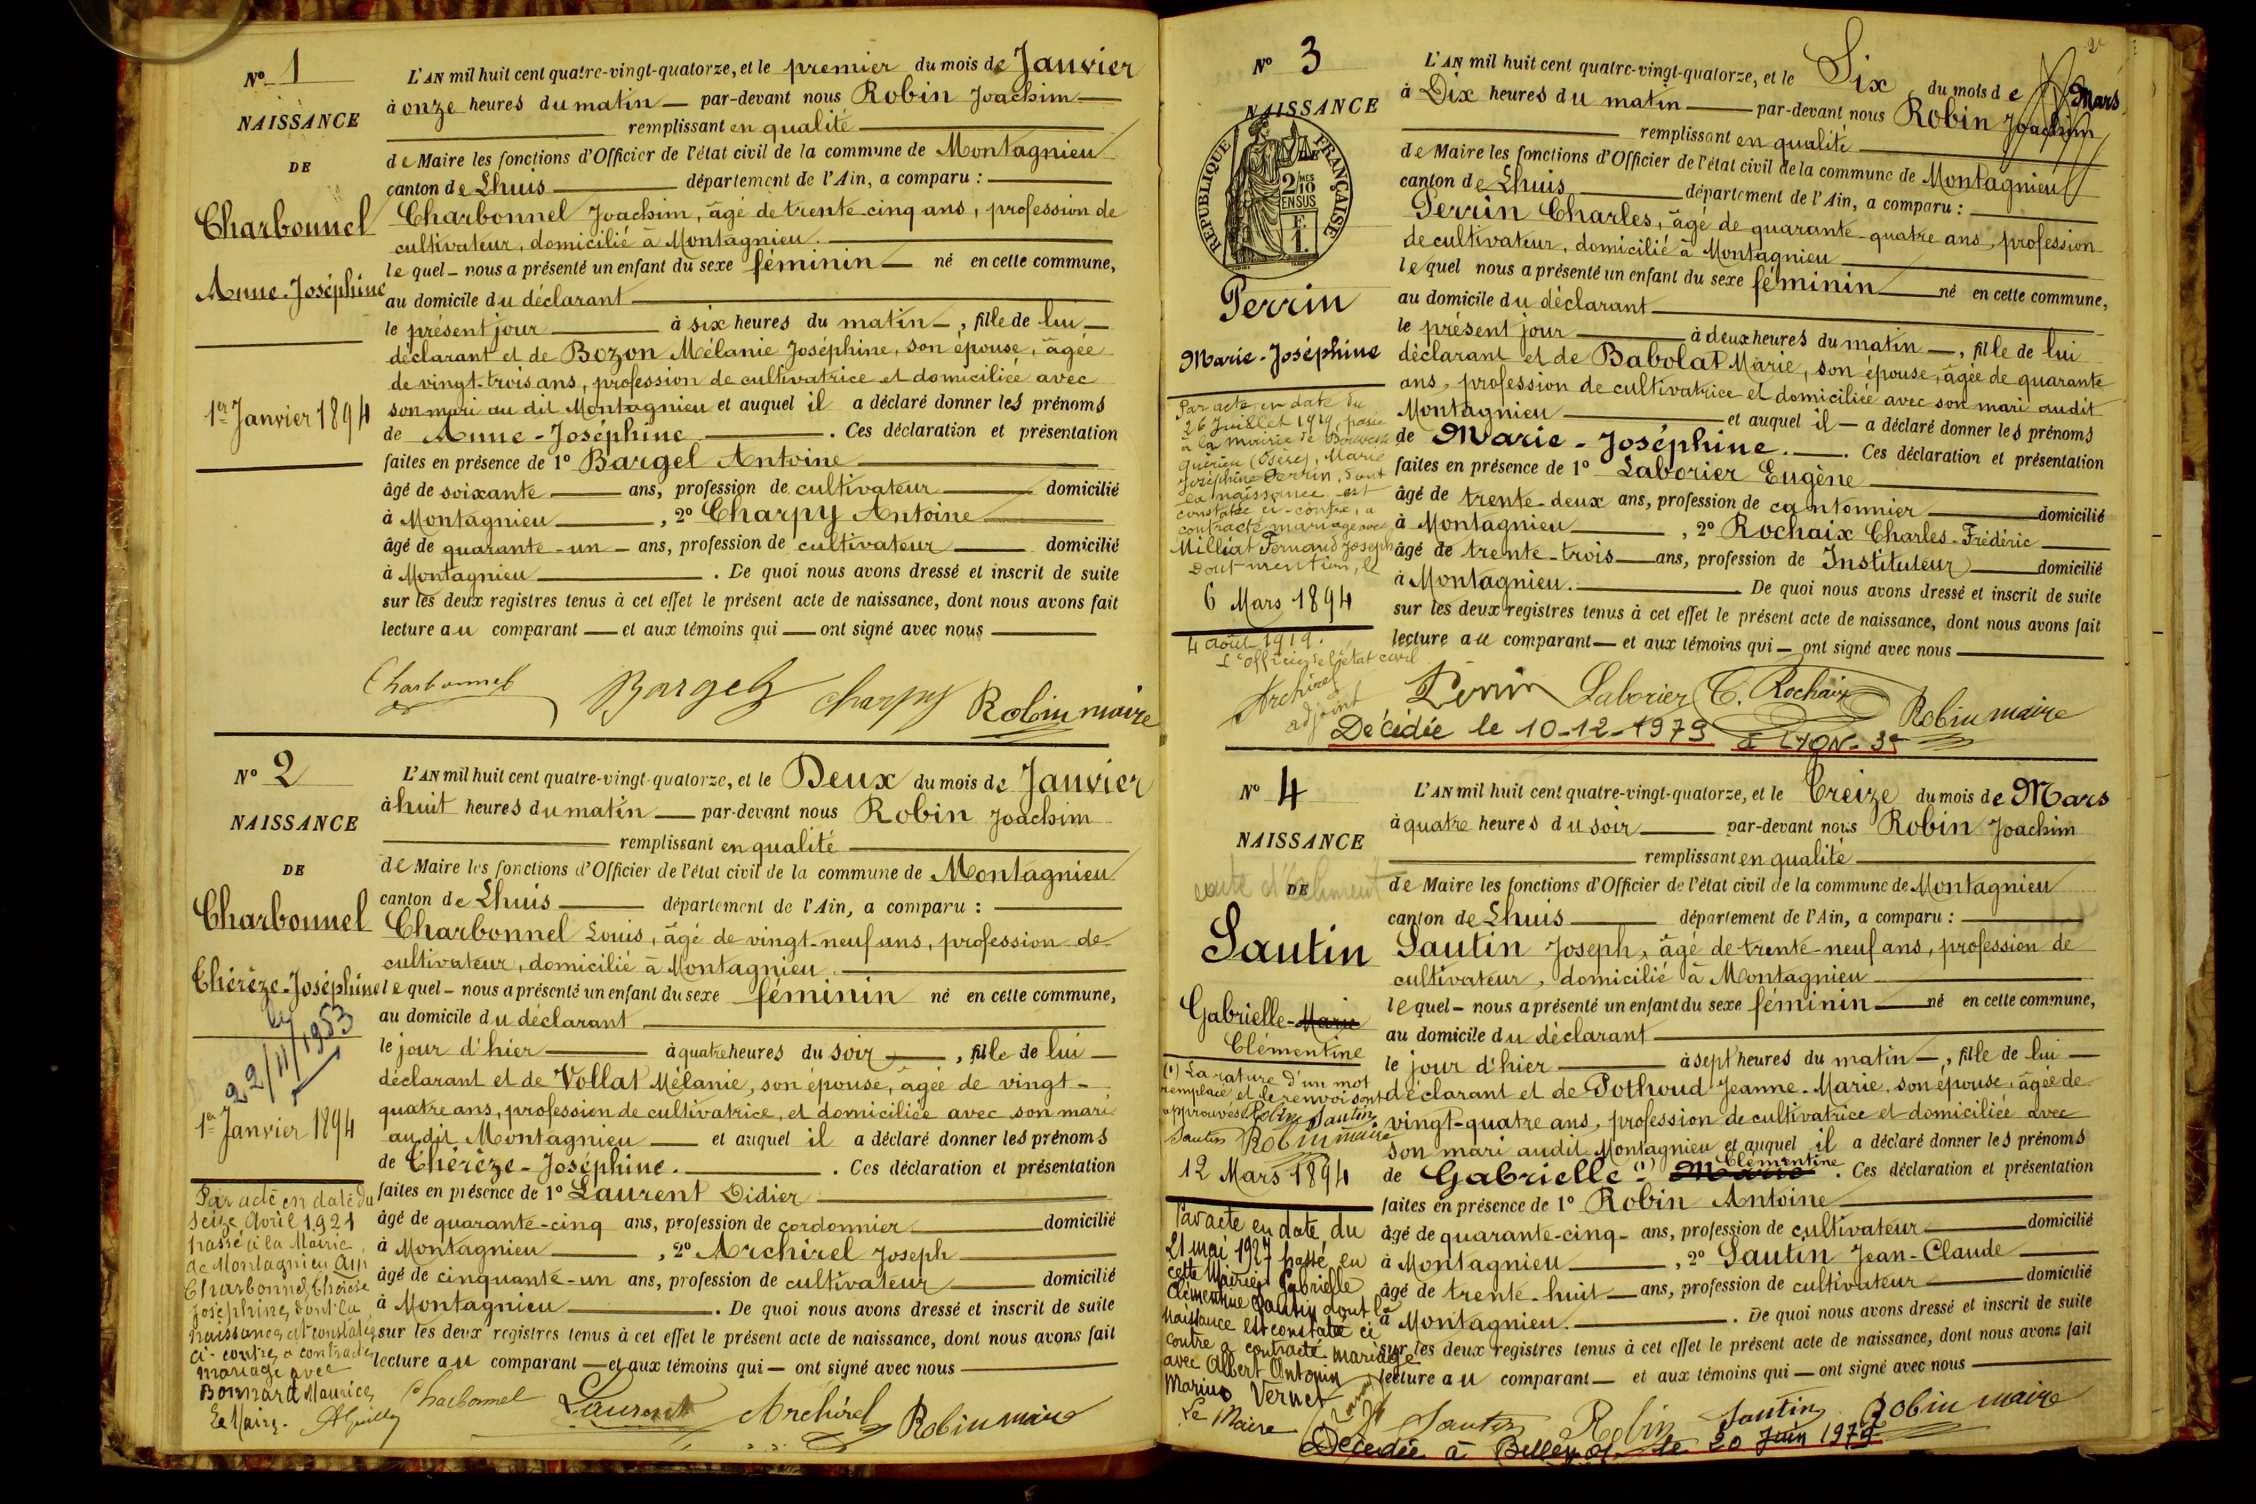 N° 1
NAISSANCE
DE
Charbonnel
Anne-Joséphine
1er Janvier 1894
L'AN mil huit cent quatre-vingt-quatorze, et le premier du mois de Janvier
à onze heures du matin par-devant nous Robin Joachim
remplissant en qualité
de Maire les fonctions d'Officier de l'état civil de la commune de Montagnieu
canton de Lhuis département de l'Ain, a comparu :
Charbonnel Joachim, âgé de trente-cinq ans, profession de
cultivateur, domicilié à Montagnieu.
lequel nous a présenté un enfant du sexe féminin né en cette commune,
au domicile du déclarant
le présent jour à six heures du matin, fille de lui
déclarant et de Bozon Mélanie Joséphine, son épouse, âgée
de vingt-trois ans, profession de cultivatrice et domiciliée avec
son mari au dit Montagnieu et auquel il a déclaré donner les prénoms
de Anne-Joséphine. Ces déclaration et présentation
faites en présence de 1° Bargel Antoine
âgé de soixante ans, profession de cultivateur domicilié
à Montagnieu, 2° Charpy Antoine
âgé de quarante-un ans, profession de cultivateur domicilié
à Montagnieu. De quoi nous avons dressé et inscrit de suite
sur les deux registres tenus à cet effet le présent acte de naissance, dont nous avons fait
lecture au comparant et aux témoins qui ont signé avec nous
Charbonnel Bargel Charpy Robin maire
N° 2
NAISSANCE
DE
Charbonnel
Thérèze-Joséphine
22/11/1953
1er Janvier 1894
Par acte en date du
seize Avril 1921
passé à la Mairie
de Montagnieu Ain
Charbonnel Thérèse
Joséphine, dont la
naissance est constatée
ci-contre, a contracté
mariage avec
Bonnard Maurice,
Le Maire.
L'AN mil huit cent quatre-vingt-quatorze, et le Deux du mois de Janvier
à huit heures du matin par-devant nous Robin Joachim
remplissant en qualité
de Maire les fonctions d'Officier de l'état civil de la commune de Montagnieu
canton de Lhuis département de l'Ain, a comparu :
Charbonnel Louis, âgé de vingt-neuf ans, profession de
cultivateur, domicilié à Montagnieu.
lequel nous a présenté un enfant du sexe féminin né en cette commune,
au domicile du déclarant
le jour d'hier à quatre heures du soir, fille de lui
déclarant et de Vollat Mélanie, son épouse, âgée de vingt-
quatre ans, profession de cultivatrice, et domiciliée avec son mari
audit Montagnieu et auquel il a déclaré donner les prénoms
de Thérèze-Joséphine. Ces déclaration et présentation
faites en présence de 1° Laurent Didier
âgé de quarante-cinq ans, profession de cordonnier domicilié
à Montagnieu, 2° Archirel Joseph
âgé de cinquante-un ans, profession de cultivateur domicilié
à Montagnieu. De quoi nous avons dressé et inscrit de suite
sur les deux registres tenus à cet effet le présent acte de naissance, dont nous avons fait
lecture au comparant et aux témoins qui ont signé avec nous
Charbonnel Laurent Archirel Robin maire
N° 3
NAISSANCE
RÉPUBLIQUE FRANÇAISE
2 MES 10 EN SUS
F 1
Perrin
Marie-Joséphine
Par acte en date du
26 Juillet 1919, passé
à la mairie de
(Isère), Marie
Joséphine Perrin, dont
la naissance est
constatée ci-contre, a
contracté mariage avec
Milliat Fernand Joseph
Dont mention, le
6 Mars 1894
4 août 1919.
L'officier de l'état civil
Archirel
adjoint
L'AN mil huit cent quatre-vingt-quatorze, et le Six du mois de Mars
à Dix heures du matin par-devant nous Robin Joachim
remplissant en qualité
de Maire les fonctions d'Officier de l'état civil de la commune de Montagnieu
canton de Lhuis département de l'Ain, a comparu :
Perrin Charles, âgé de quarante-quatre ans, profession
de cultivateur, domicilié à Montagnieu
lequel nous a présenté un enfant du sexe féminin né en cette commune,
au domicile du déclarant
le présent jour à deux heures du matin, fille de lui
déclarant et de Babolat Marie, son épouse, âgée de quarante
ans, profession de cultivatrice et domiciliée avec son mari audit
Montagnieu et auquel il a déclaré donner les prénoms
de Marie-Joséphine. Ces déclaration et présentation
faites en présence de 1° Laborier Eugène
âgé de trente-deux ans, profession de cantonnier domicilié
à Montagnieu, 2° Rochaix Charles-Frédéric
âgé de trente-trois ans, profession de Instituteur domicilié
à Montagnieu. De quoi nous avons dressé et inscrit de suite
sur les deux registres tenus à cet effet le présent acte de naissance, dont nous avons fait
lecture au comparant et aux témoins qui ont signé avec nous
Perrin Laborier C. Rochaix Robin maire
Décédée le 10-12-1979 à LYON-3e
N° 4
NAISSANCE
DE
Sautin
Gabrielle-Marie
Clémentine
(1) La rature d'un mot
remplacé et le renvoi sont
approuvés Robin Sautin
Sautin Robin maire
12 Mars 1894
Par acte en date du
21 mai 1927 passé en
cette Mairie, Gabrielle
Clémentine Sautin dont la
naissance est constatée ci
contre a contracté mariage
avec Albert Antonin
Marius Vernet
Le Maire
L'AN mil huit cent quatre-vingt-quatorze, et le Treize du mois de Mars
à quatre heures du soir par-devant nous Robin Joachim
remplissant en qualité
de Maire les fonctions d'Officier de l'état civil de la commune de Montagnieu
canton de Lhuis département de l'Ain, a comparu :
Sautin Joseph, âgé de trente-neuf ans, profession de
cultivateur, domicilié à Montagnieu
lequel nous a présenté un enfant du sexe féminin né en cette commune,
au domicile du déclarant
le jour d'hier à sept heures du matin, fille de lui
déclarant et de Pothoud Jeanne-Marie, son épouse, âgée de
vingt-quatre ans, profession de cultivatrice et domiciliée avec
son mari audit Montagnieu et auquel il a déclaré donner les prénoms
de Gabrielle (1) Marie Clémentine. Ces déclaration et présentation
faites en présence de 1° Robin Antoine
âgé de quarante-cinq ans, profession de cultivateur domicilié
à Montagnieu, 2° Sautin Jean-Claude
âgé de trente-huit ans, profession de cultivateur domicilié
à Montagnieu. De quoi nous avons dressé et inscrit de suite
sur les deux registres tenus à cet effet le présent acte de naissance, dont nous avons fait
lecture au comparant et aux témoins qui ont signé avec nous
Sautin Robin Sautin Robin maire
Décédée à le 20 Juin 1979